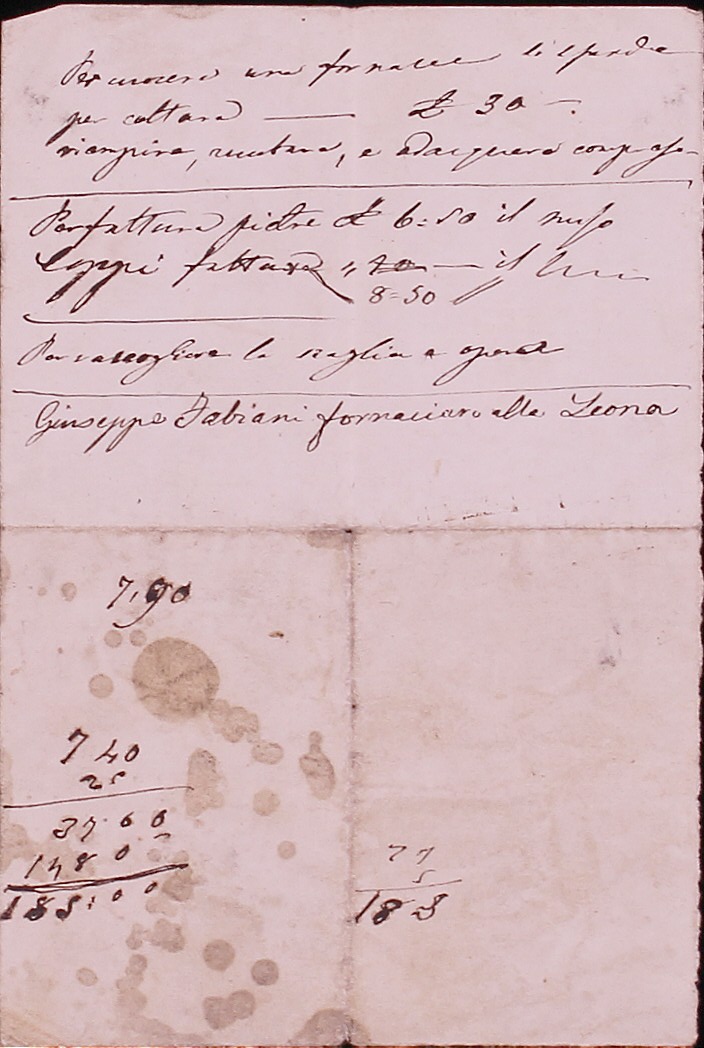 Per cuocere una fornace di
per cottura — £ 30 —.
riempire, vuotare, e adacquare
Per fattura pietre £ 6=50 il
Coppi fattura " 10 — il
8=50
Per raccogliere la e opera
Giuseppe Fabiani fornaciaro alla Leona
7,90
740
25
3700
1480
185:00
5
185